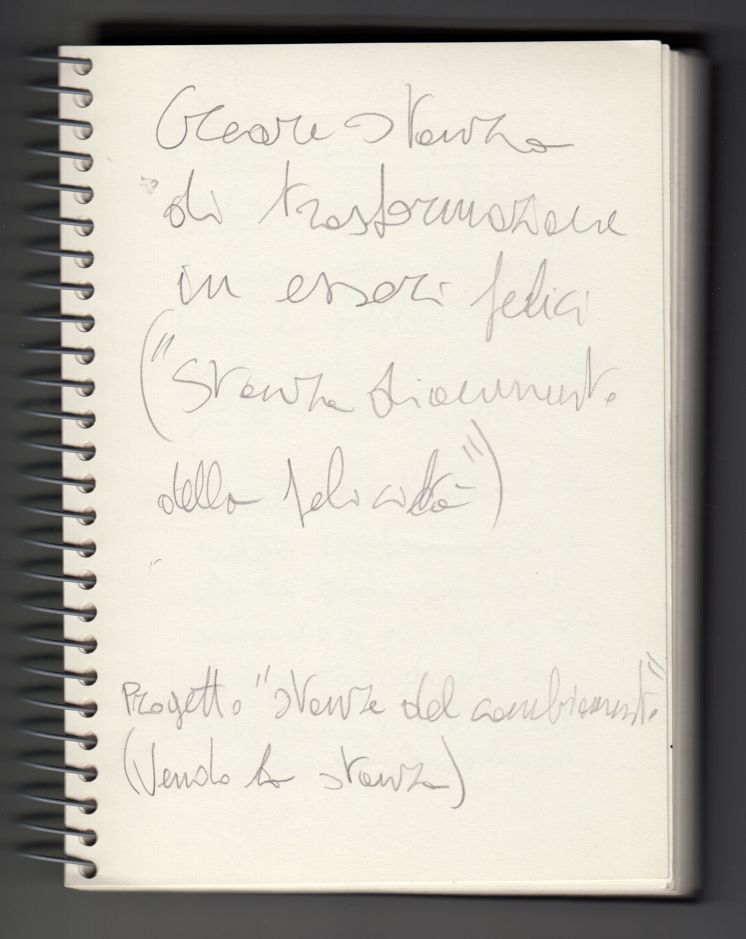 Creare stanza
di trasformazione
in esseri felici
("Stanza
della felicità")
Progetto "stanze del cambiamento"
(Vendo la stanza)